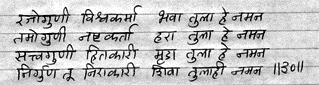 रजोगुणी विश्वकर्मा भवा तुला हे नमन
तमोगुणी नष्टकर्ता हरा तुला हे नमन
सत्त्वगुणी हितकारी मुडा तुला हे नमन
निर्गुण तू निराकारी शिवा तुलाही नमन ॥३०॥